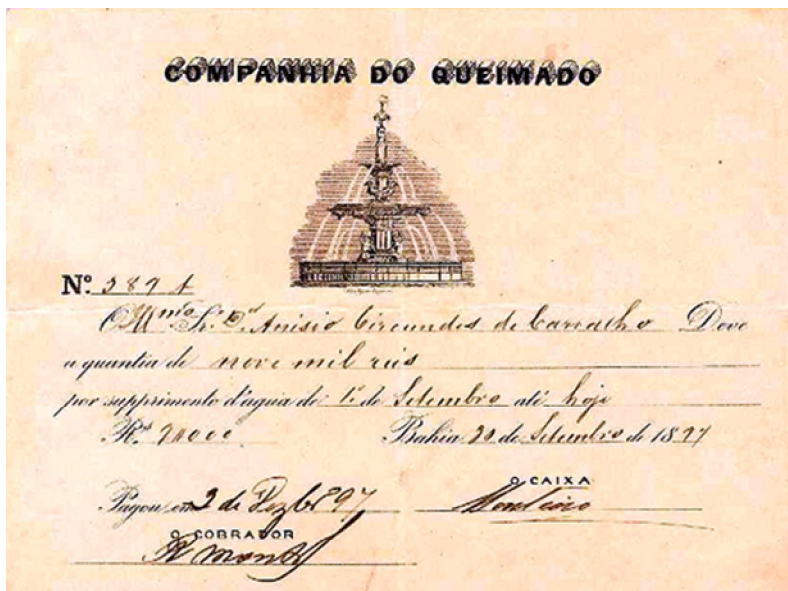 COMPANHIA DO QUEIMADO
Nº 389 A
O Illmo. Sr. Dr. Anisio Circundes de Carvalho Deve
a quantia de nove mil réis
por supprimento d'agua de 1º de Setembro até hoje
Rs. 9$000 Bahia 30 de Setembro de 1897
Pagou em 3 de Dezbro 97
O CAIXA
Monteiro
O COBRADOR